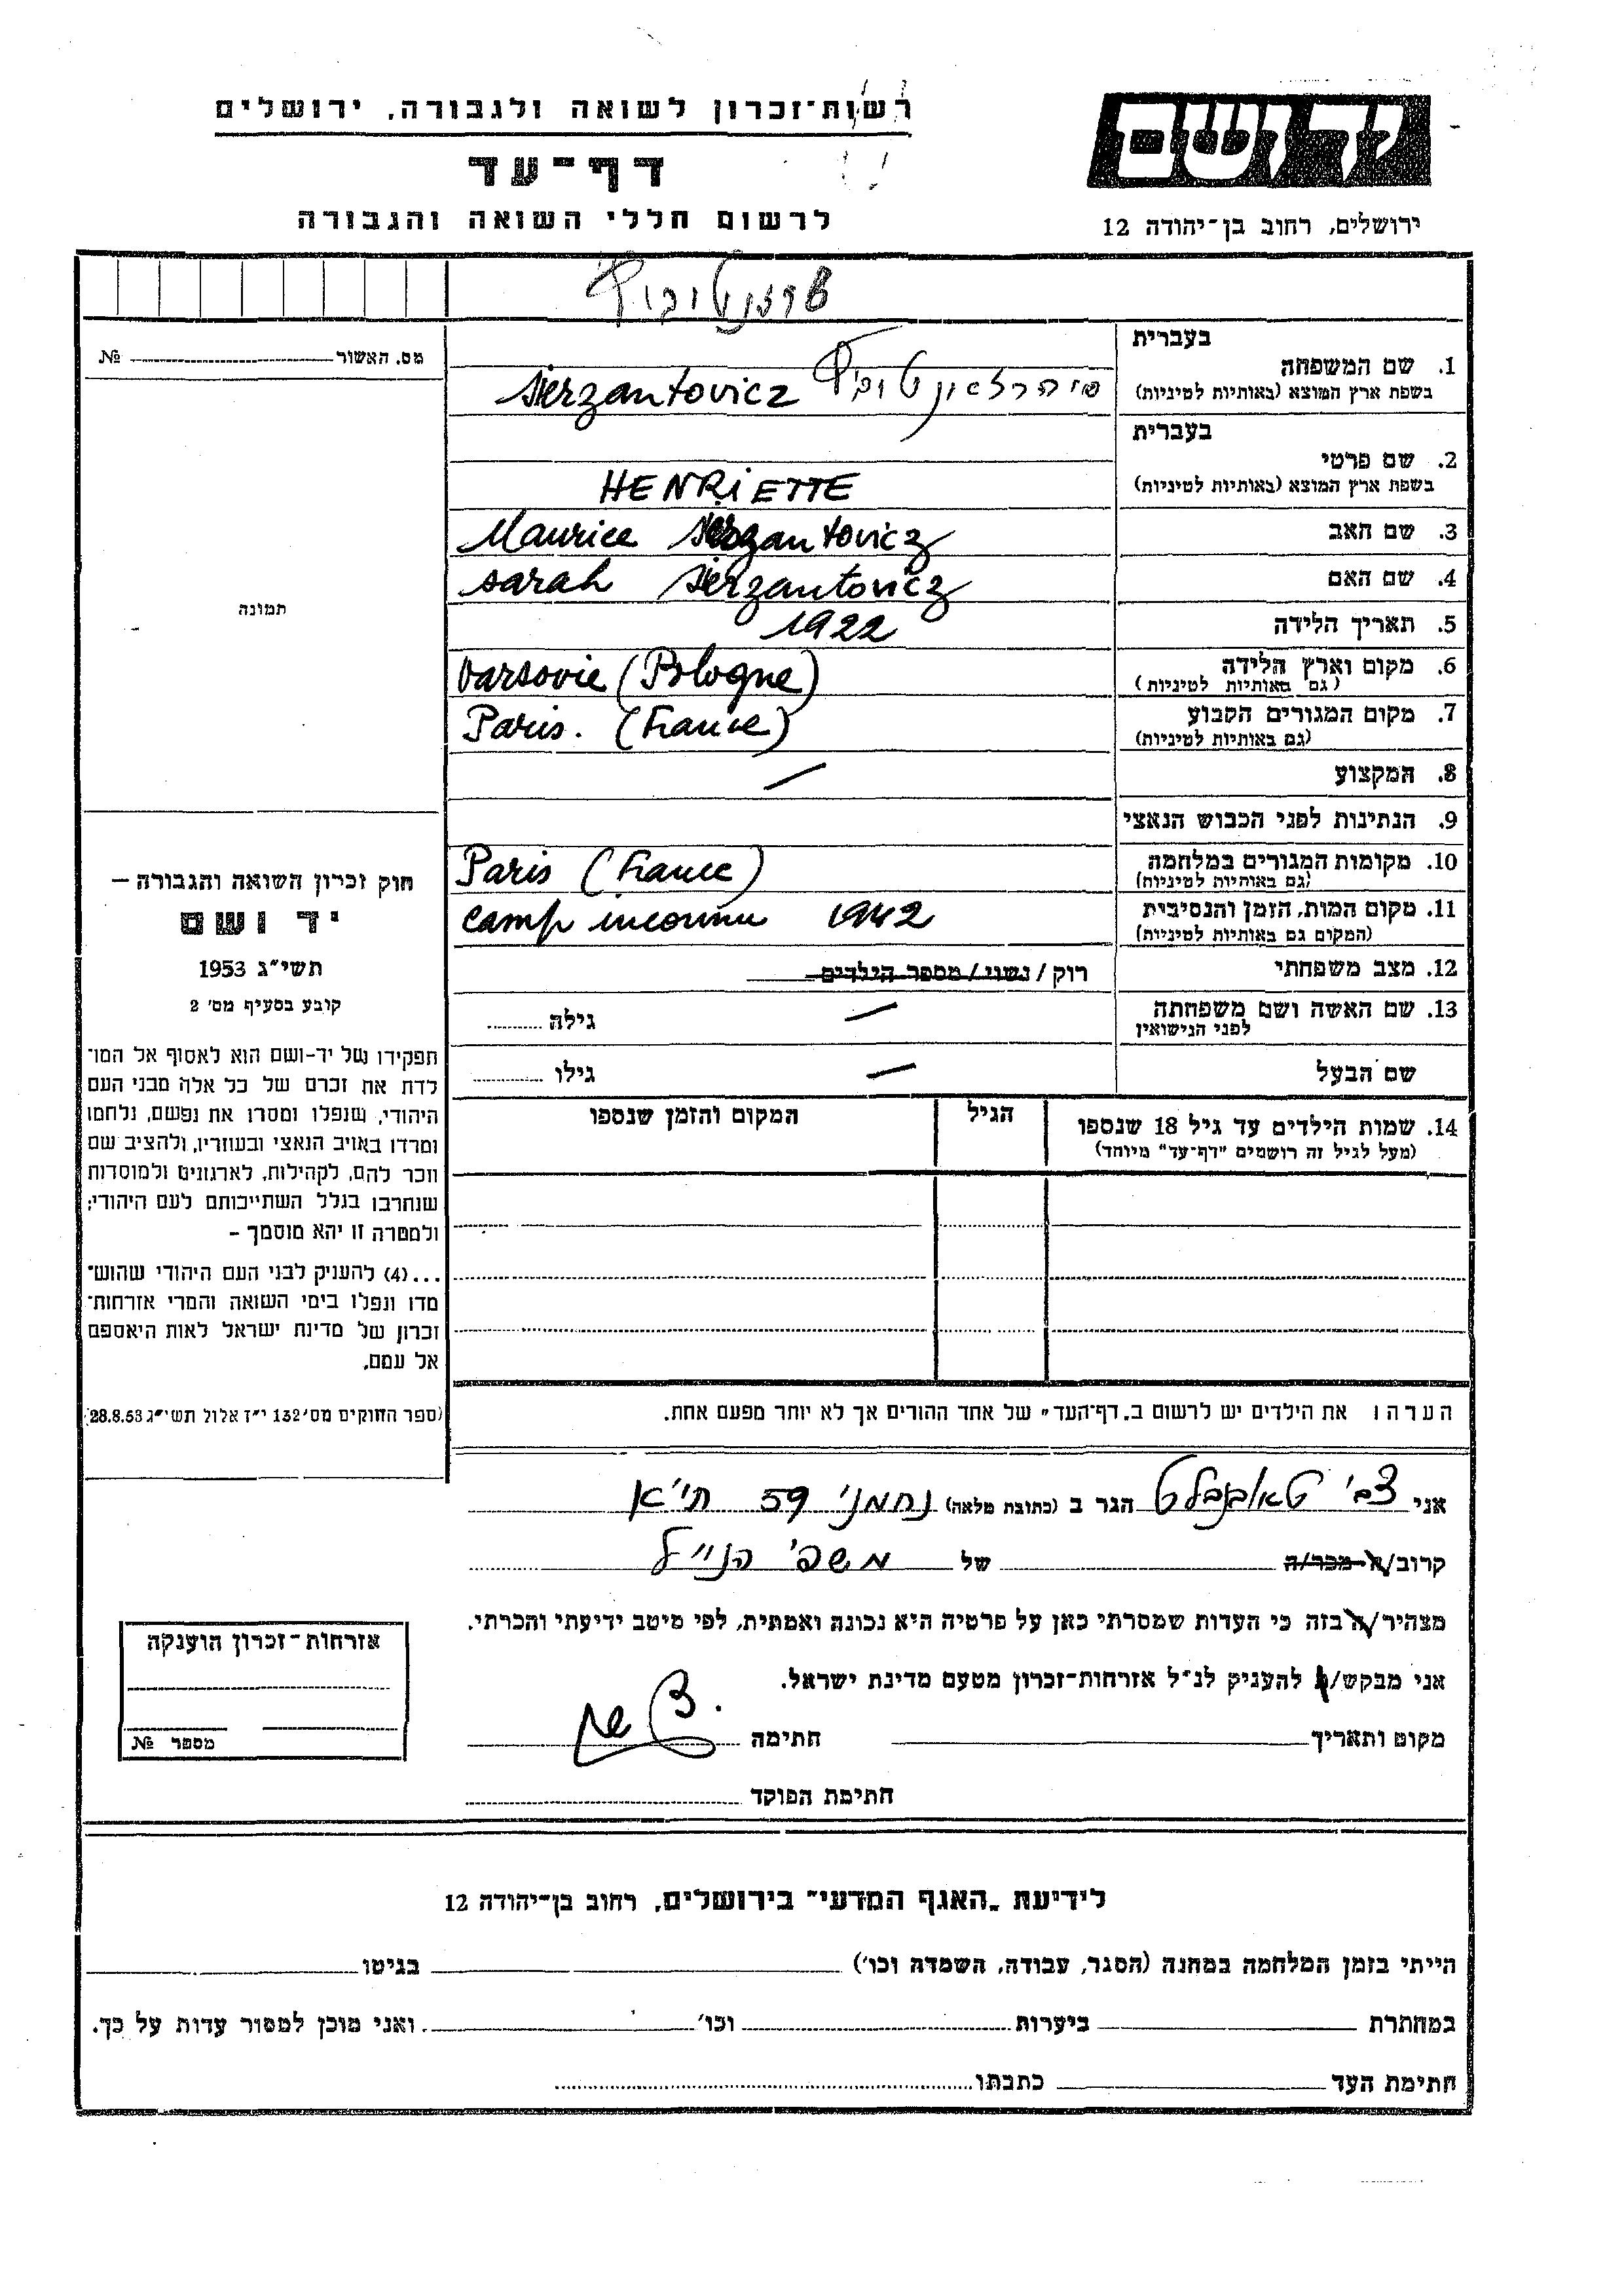 רשות־זכרון לשואה ולגבורה, ירושלים
יד ושם
דף־עד
לרשום חללי השואה והגבורה
ירושלים, רחוב בן־יהודה 12
מס. האשור № 
1. שם המשפחה בעברית
בשפת ארץ המוצא (באותיות לטיניות) sierzantovicz
2. שם פרטי בעברית
בשפת ארץ המוצא (באותיות לטיניות) HENRiETTE
3. שם האב Maurice sierzantovicz
4. שם האם sarah sierzantovicz
5. תאריך הלידה 1922
6. מקום וארץ הלידה varsovie (Pologne)
(גם באותיות לטיניות)
7. מקום המגורים הקבוע Paris. (France)
(גם באותיות לטיניות)
8. המקצוע —
9. הנתינות לפני הכבוש הנאצי
10. מקומות המגורים במלחמה Paris (France)
(גם באותיות לטיניות)
11. מקום המות, הזמן והנסיבית camp inconnu 1942
(המקום גם באותיות לטיניות)
12. מצב משפחתי רוק / נשוי / מספר הילדים
13. שם האשה ושם משפחתה — גילה
לפני הנישואין
שם הבעל — גילו
14. שמות הילדים עד גיל 18 שנספו הגיל המקום והזמן שנספו
(מעל לגיל זה רושמים "דף־עד" מיוחד)
הערה: את הילדים יש לרשום ב„דף־העד" של אחד ההורים אך לא יותר מפעם אחת.
תמונה
חוק זכרון השואה והגבורה —
יד ושם
תשי"ג 1953
קובע בסעיף מס' 2
תפקידו של יד-ושם הוא לאסוף אל המו־
לדת את זכרם של כל אלה מבני העם
היהודי, שנפלו ומסרו את נפשם, נלחמו
ומרדו באויב הנאצי ובעוזריו, ולהציב שם
וזכר להם, לקהילות, לארגונים ולמוסדות
שנחרבו בגלל השתייכותם לעם היהודי;
ולמטרה זו יהא מוסמך –
...(4) להעניק לבני העם היהודי שהוש־
מדו ונפלו בימי השואה והמרי אזרחות־
זכרון של מדינת ישראל לאות היאספם
אל עמם.
(ספר החוקים מס' 132 י"ז אלול תשי"ג 28.8.53)
אני צבי הגר ב (כתובת מלאה) נחמני 59 ת"א
קרוב/ה מכר/ה של משפ' הנ"ל
מצהיר/ה בזה כי העדות שמסרתי כאן על פרטיה היא נכונה ואמתית, לפי מיטב ידיעתי והכרתי.
אני מבקש/ת להעניק לנ"ל אזרחות־זכרון מטעם מדינת ישראל.
מקום ותאריך חתימה
חתימת הפוקד
אזרחות־זכרון הוענקה
מספר №
לידיעת „האגף המדעי" בירושלים, רחוב בן־יהודה 12
הייתי בזמן המלחמה במחנה (הסגר, עבודה, השמדה וכו') בגיטו
במחתרת ביערות וכו' ואני מוכן למסור עדות על כך.
חתימת העד כתבתו